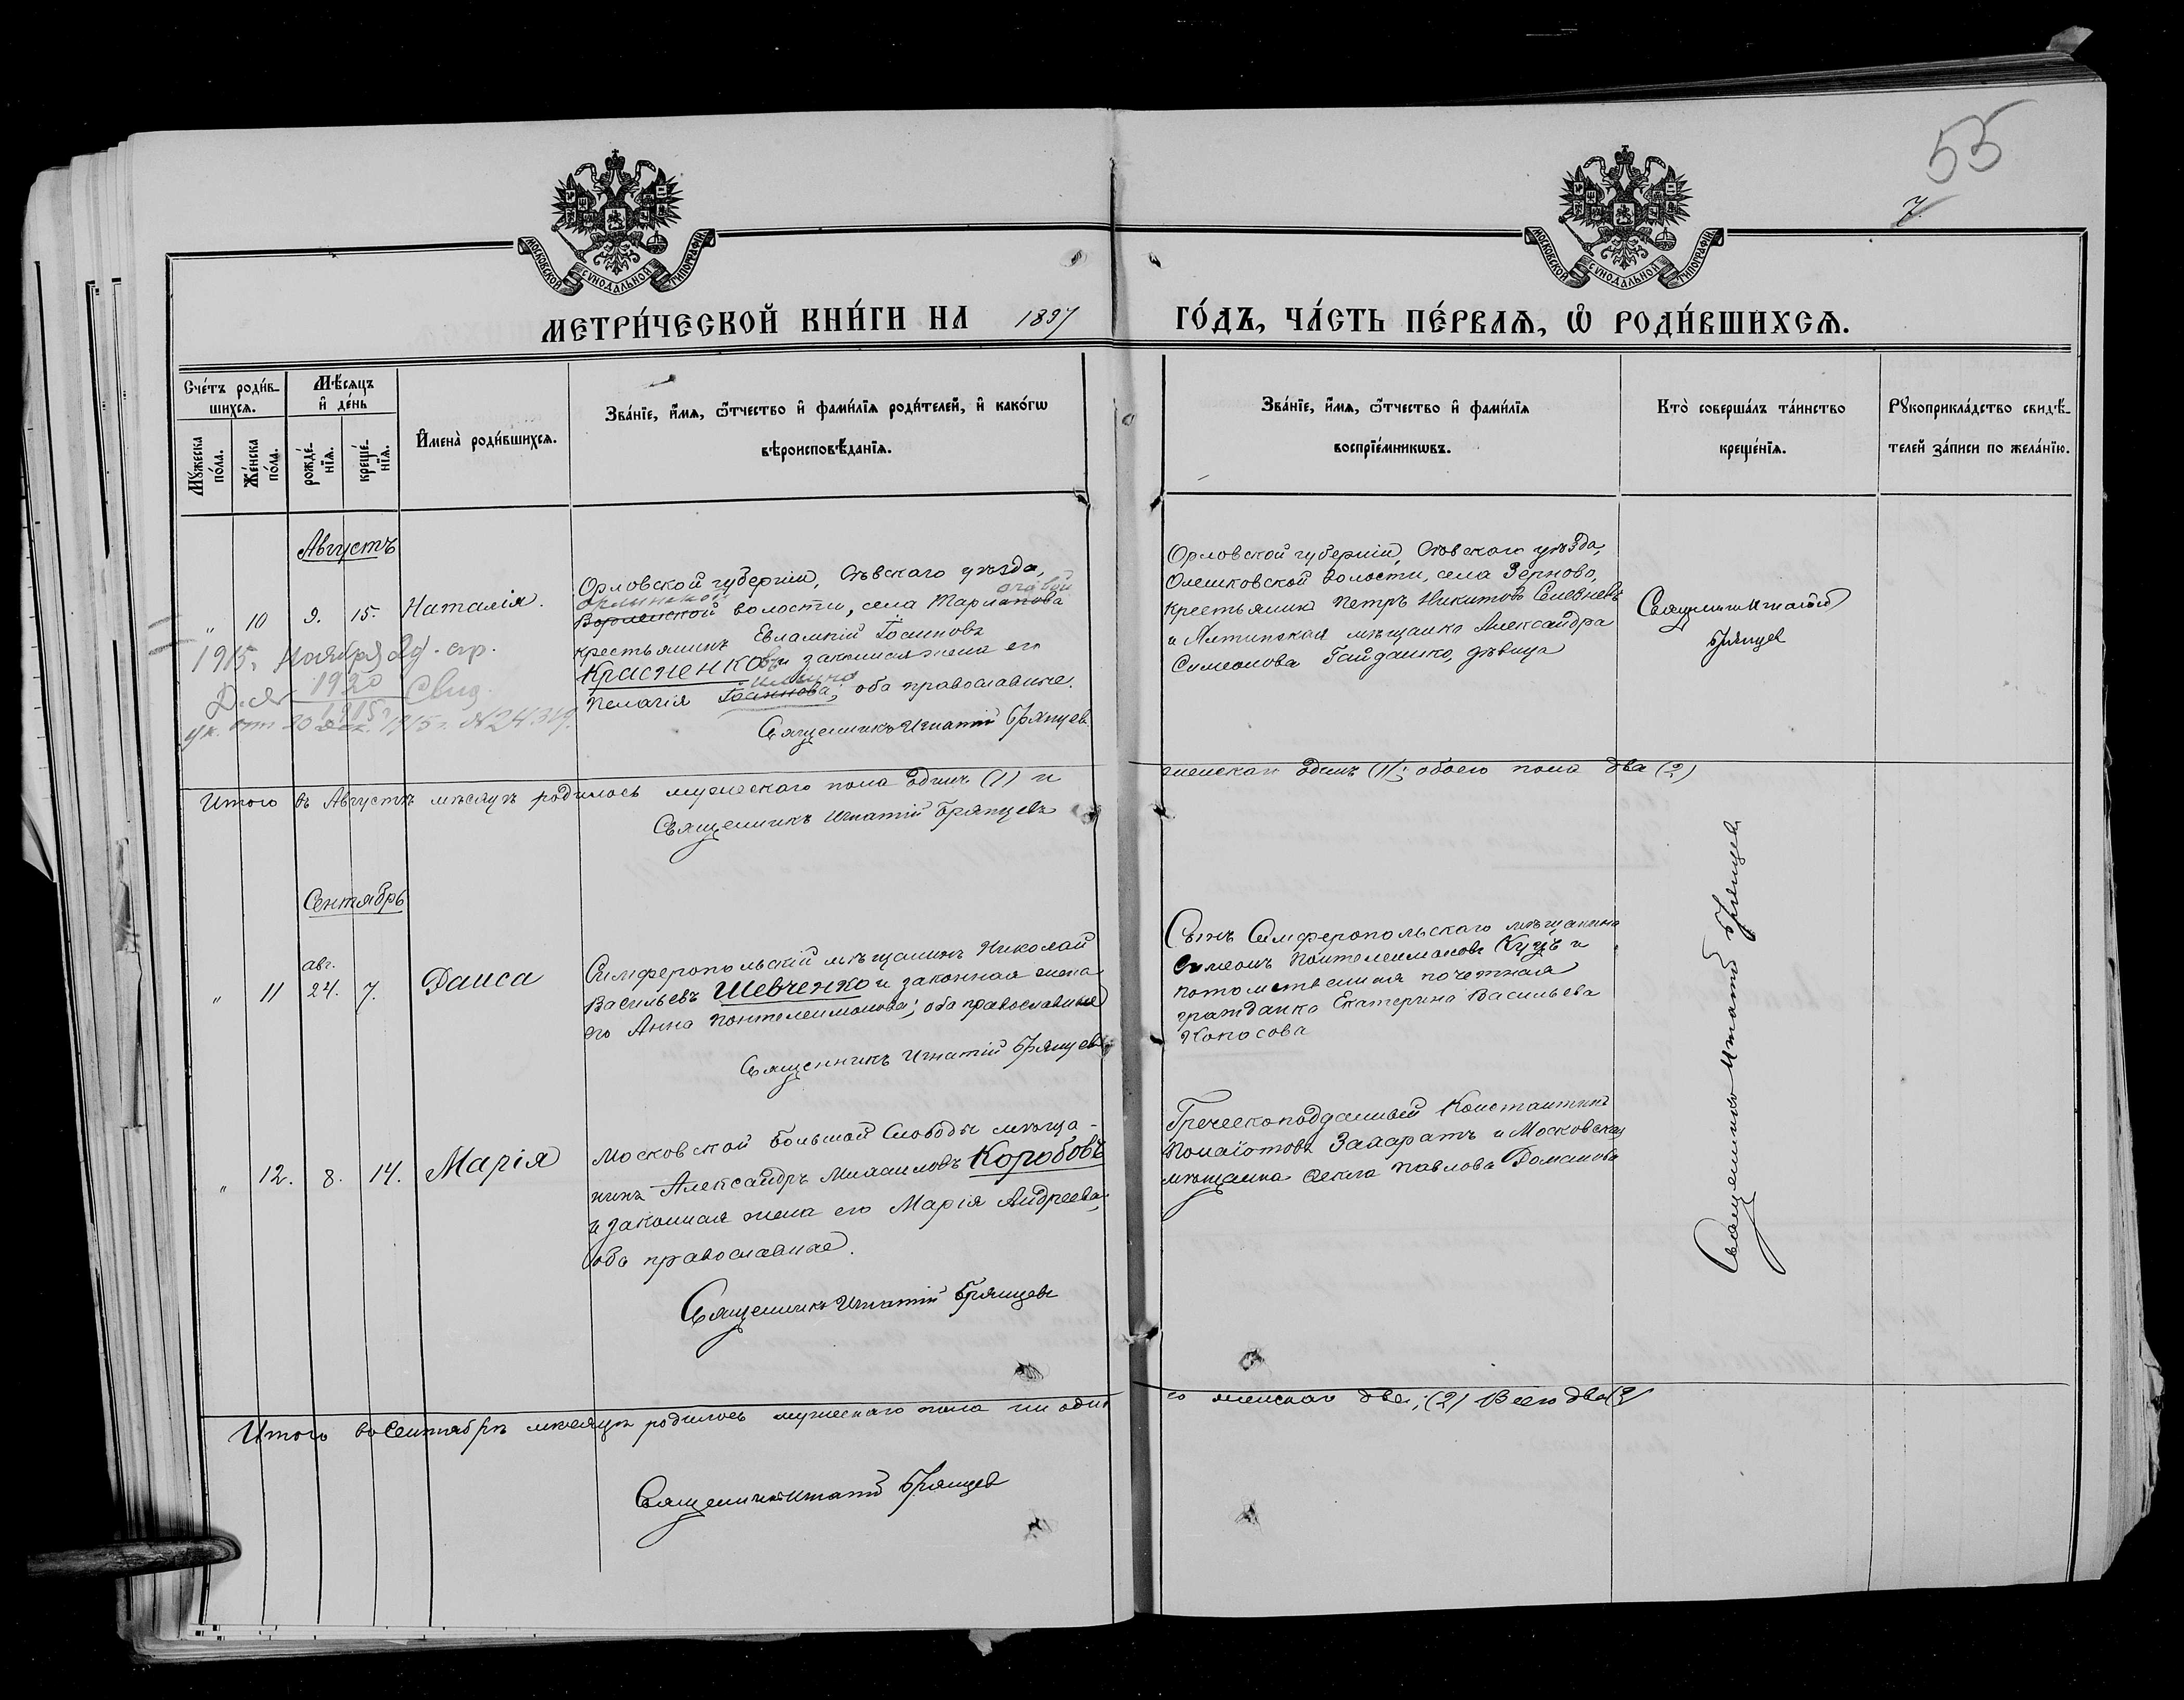 55
7.
МОСКОВСКОЙ СУНОДАЛЬНОЙ ТИПОГРАФІИ
МОСКОВСКОЙ СУНОДАЛЬНОЙ ТИПОГРАФІИ
МЕТРИ́ЧЕСКОЙ КНИ́ГИ НА 1897 ГО́ДЪ, ЧА́СТЬ ПЕ́РВАЯ, Ѡ҆ РОДИ́ВШИХСЯ.
Сче́тъ роди́в-
шихся.
Мѣ́сяцъ
и҆ де́нь
Мꙋ́жеска
по́ла.
Же́нска
по́ла.
рожде́-
нїя.
креще́-
нїя.
И҆мена̀ роди́вшихся.
Зва́нїе, и҆́мя, ѻ҆́тчество и҆ фами́лїя роди́телей, и҆ како́гѡ
вѣроисповѣ́данїя.
Зва́нїе, и҆́мя, ѻ҆́тчество и҆ фами́лїя
воспрїе́мникѡвъ.
Кто̀ соверша́лъ та́инство
креще́нїя.
Рꙋкоприкла́дство свидѣ́-
телей за́писи по жела́нїю.
Августъ
" 10 9. 15. Наталія.
Орловской губерніи, Сѣвскаго уѣзда,
волости, села
крестьянинъ Евлампій Іоанновъ
Красненковъ и законная жена его
Пелагія Іоаннова; оба православные.
Священникъ Игнатій Брянцевъ
1915 г. Ноября 29.
1920
1915 Свид.
ук. отъ 20 1915 г. №24319.
Орловской губерніи, Сѣвскаго уѣзда,
Олешковской волости, села Зёрново,
крестьянинъ Петръ Никитовъ
и Ялтинская мѣщанка Александра
Симеонова Гайдашко, дѣвица
Священникъ Игнатій
Брянцев
Итого въ Августѣ мѣсяцѣ родилось мужескаго пола Одинъ (1) и женскаго Одинъ (1); обоего пола два (2)
Священникъ Игнатій Брянцевъ
Сентябрь
авг.
" 11 24. 7. Раиса
Симферопольскій мѣщанинъ Николай
Васильевъ Шевченко и законная жена
его Анна Пантелеимонова; оба православные
Священникъ Игнатій Брянцевъ
Сынъ Симферопольскаго мѣщанина
Симеонъ Пантелеимоновъ Куцъ и
потомственная почетная
гражданка Екатерина Васильева
Колосова
" 12. 8. 14. Марія
Московской Большой Слободы мѣща-
нинъ Александръ Михаиловъ Коробовъ
и законная жена его Марія Андреева,
оба православные.
Священникъ Игнатій Брянцевъ
Греческоподданный Константинъ
Панаіотовъ и Московская
мѣщанка Ѳекла Павлова Романова
Священникъ Игнатій Брянцевъ
Итого въ Сентябрѣ мѣсяцѣ родилось мужескаго пола ни одного женскаго два; (2) Всего два (2)
Священникъ Игнатій Брянцев